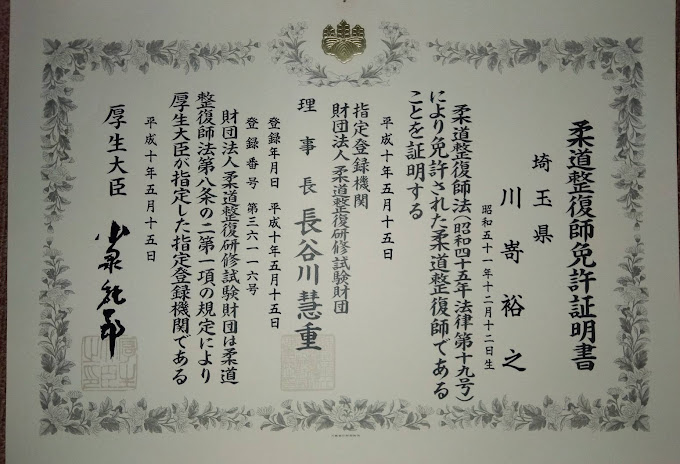 柔道整復師免許証明書
埼玉県
川嵜裕之
昭和五十一年十二月十二日生
柔道整復師法(昭和四十五年法律第十九号)
により免許された柔道整復師である
ことを証明する
平成十年五月十五日
指定登録機関
財団法人柔道整復研修試験財団
理事長 長谷川慧重
登録年月日 平成十年五月十五日
登録番号 第三六一一六号
財団法人柔道整復研修試験財団は柔道
整復師法第八条の二第一項の規定により
厚生大臣が指定した指定登録機関である
平成十年五月十五日
厚生大臣 小泉純一郎